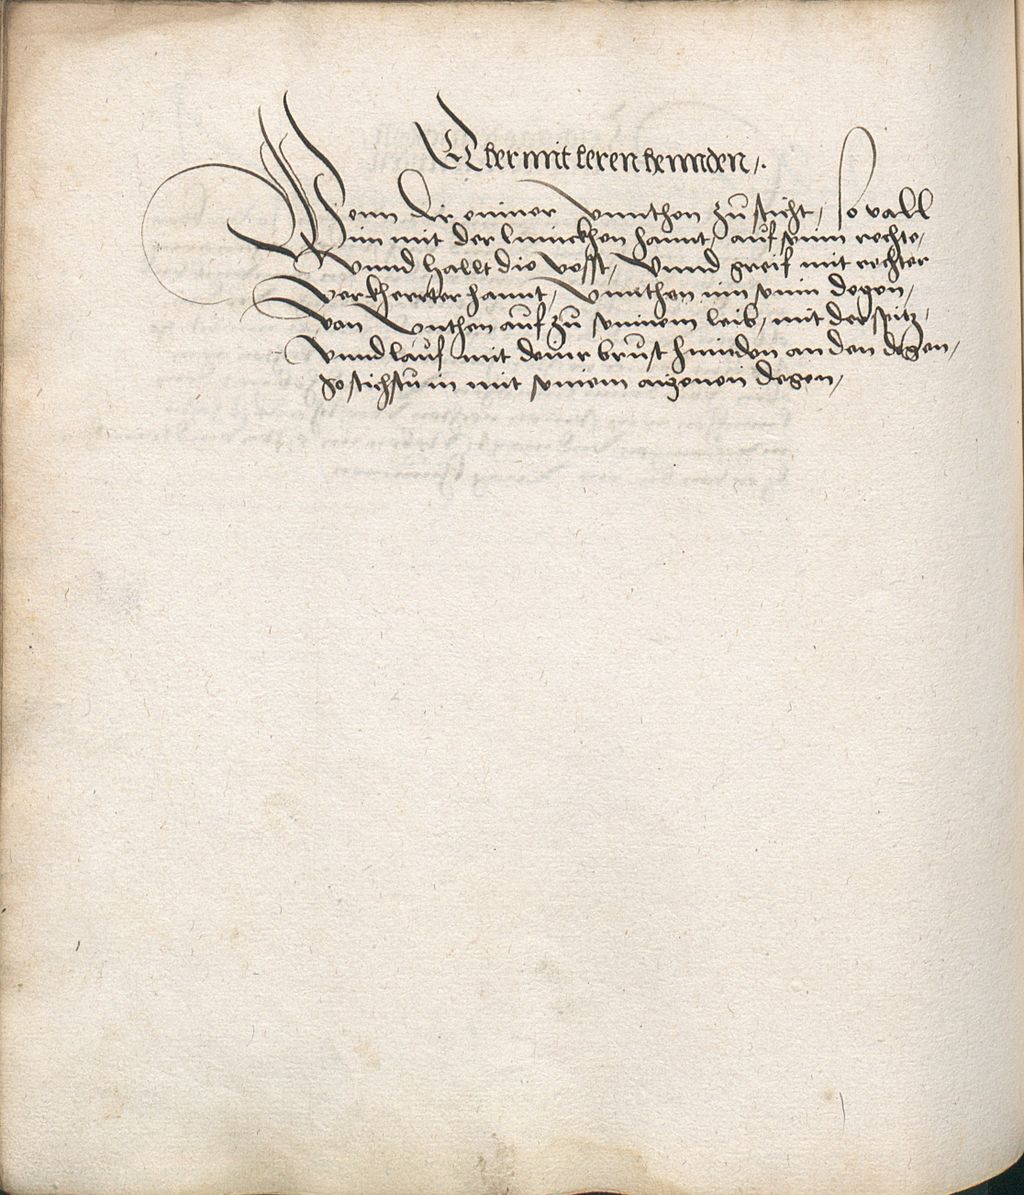 Aber mit leren hennden /.
Wenn dir einner vnnthen zu sticht / so vall
im mit der linnckhen hannt / auf seim rechte /
vnnd hallt die vesst / vnnd greif mit rechter
verkherrter hannt / vnnthen inn seim degen /
von vnthen auf zu seinnem leib / mit der spitz /
vnnd lauf mit deinr brust hinnden an den degen /
so stichstu in mit seinem aigenen degen /